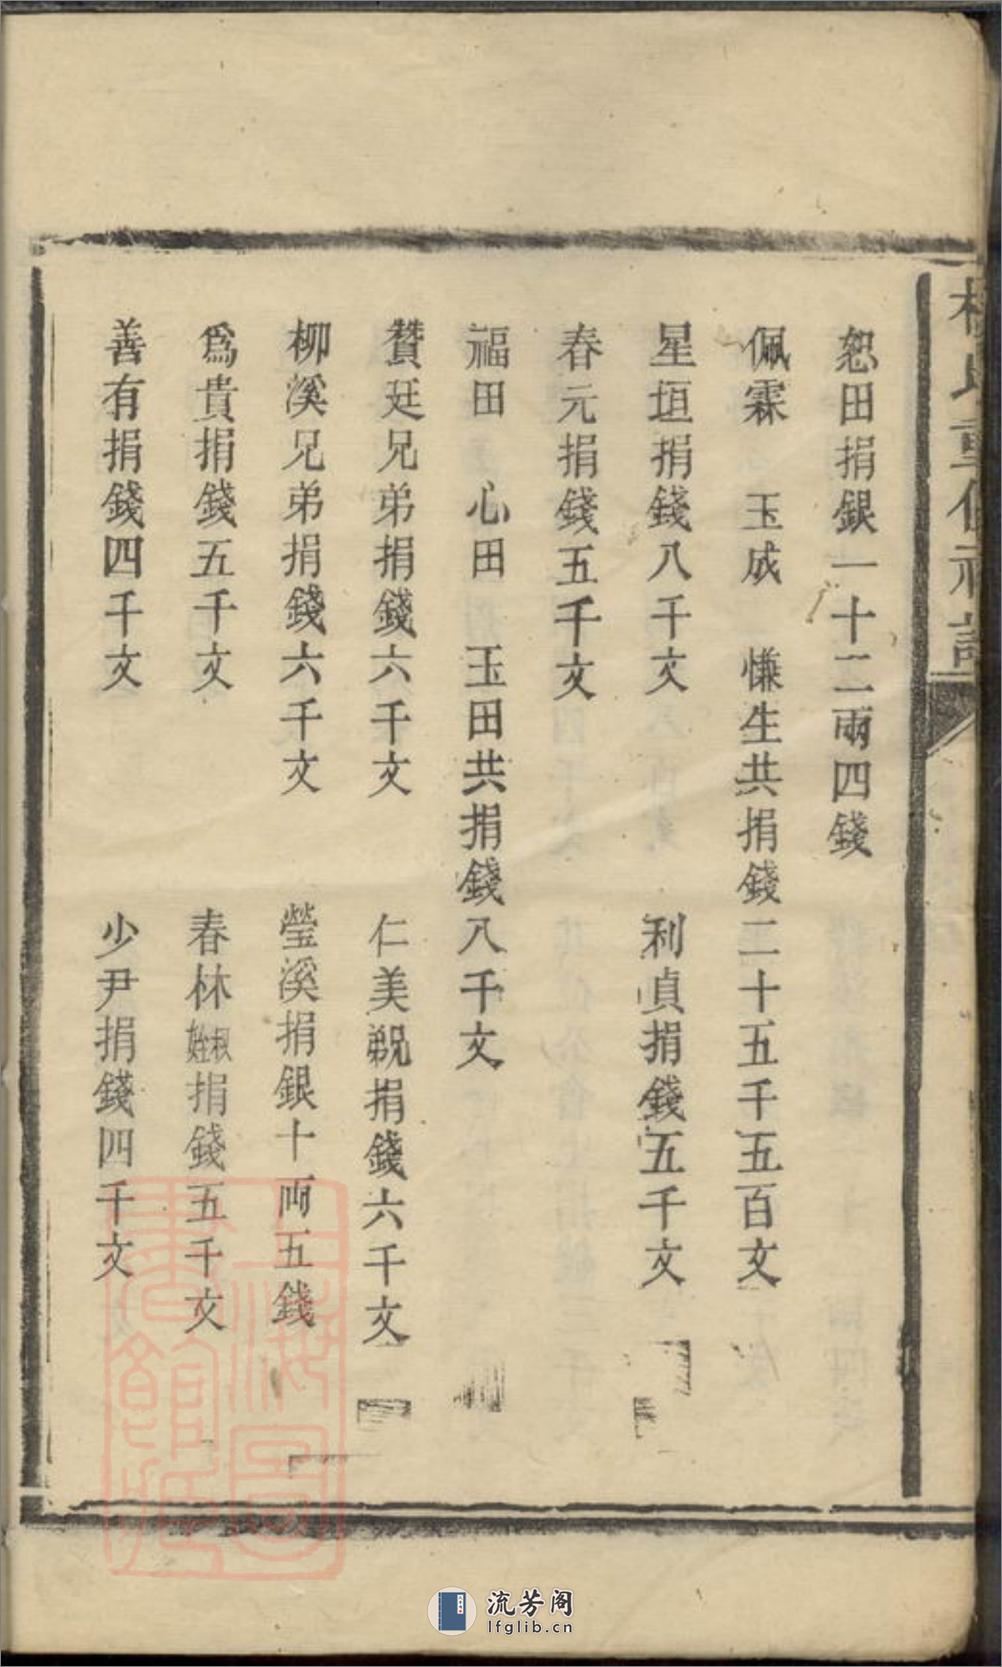 恕田捐銀一十二兩四錢
佩霖　玉成　慊生共捐錢二十五千五百文
星垣捐錢八千文　利貞捐錢五千文
春元捐錢五千文
福田　心田　玉田共捐錢八千文
贊廷兄弟捐錢六千文　仁美兄弟捐錢六千文
柳溪兄弟捐錢六千文　瑩溪捐銀十両五錢
爲貴捐錢五千文　春林叔姪捐錢五千文
善有捐錢四千文　少尹捐錢四千文
上海圖書館藏
流芳阁
lfglib.cn